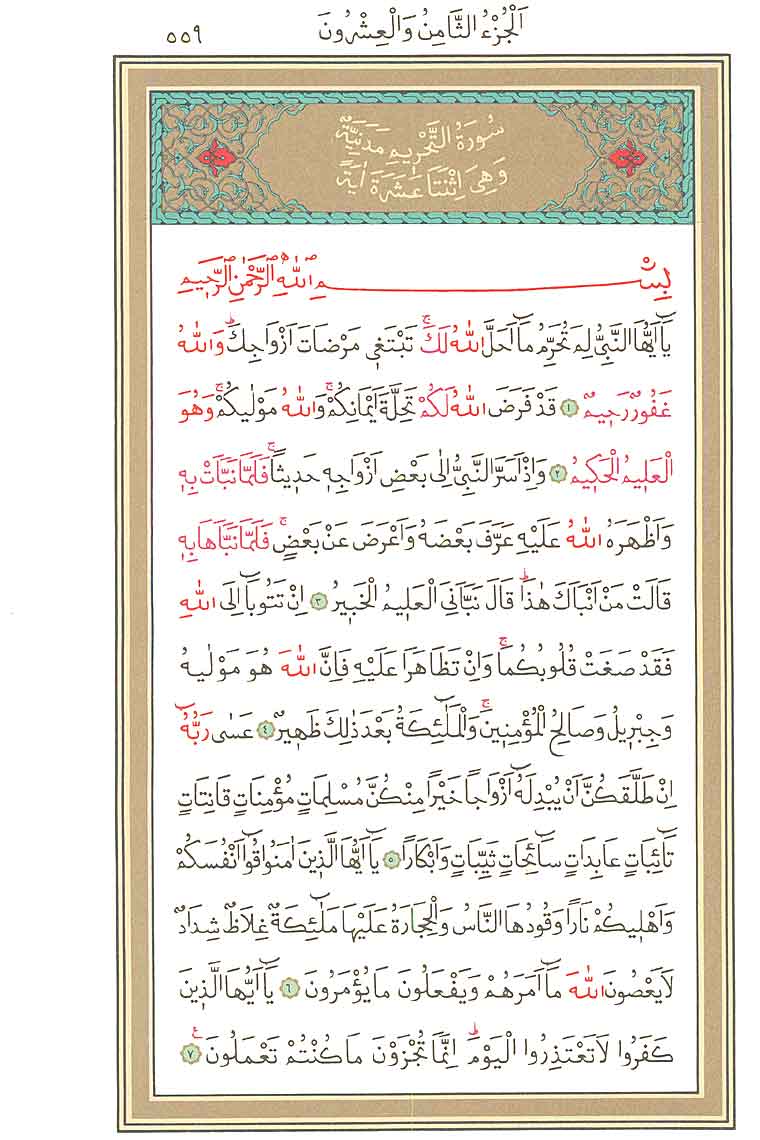 اَلْجُزْءُ الثَّامِنُ وَالْعِشْرُونَ ٥٥٩
سُورَةُ التَّحْرِيمِ مَدَنِيَّةٌ
وَهِيَ اِثْنَتَا عَشَرَةَ اٰيَةً
بِسْمِ اللّٰهِ الرَّحْمٰنِ الرَّحِيمِ
يَٓا اَيُّهَا النَّبِيُّ لِمَ تُحَرِّمُ مَٓا اَحَلَّ اللّٰهُ لَكَۚ تَبْتَغِي مَرْضَاتَ اَزْوَاجِكَۜ وَاللّٰهُ
غَفُورٌ رَحِيمٌ ﴿١﴾ قَدْ فَرَضَ اللّٰهُ لَكُمْ تَحِلَّةَ اَيْمَانِكُمْۚ وَاللّٰهُ مَوْلٰيكُمْۚ وَهُوَ
الْعَلِيمُ الْحَكِيمُ ﴿٢﴾ وَاِذْ اَسَرَّ النَّبِيُّ اِلٰى بَعْضِ اَزْوَاجِهِ حَدِيثاًۚ فَلَمَّا نَبَّاَتْ بِهِ
وَاَظْهَرَهُ اللّٰهُ عَلَيْهِ عَرَّفَ بَعْضَهُ وَاَعْرَضَ عَنْ بَعْضٍۚ فَلَمَّا نَبَّاَهَا بِهِ
قَالَتْ مَنْ اَنْبَاَكَ هٰذَاۜ قَالَ نَبَّاَنِيَ الْعَلِيمُ الْخَبِيرُ ﴿٣﴾ اِنْ تَتُوبَٓا اِلَى اللّٰهِ
فَقَدْ صَغَتْ قُلُوبُكُمَاۚ وَاِنْ تَظَاهَرَا عَلَيْهِ فَاِنَّ اللّٰهَ هُوَ مَوْلٰيهُ
وَجِبْرِيلُ وَصَالِحُ الْمُؤْمِنِينَۚ وَالْمَلٰٓئِكَةُ بَعْدَ ذٰلِكَ ظَهِيرٌ ﴿٤﴾ عَسٰى رَبُّهُٓ
اِنْ طَلَّقَكُنَّ اَنْ يُبْدِلَهُٓ اَزْوَاجاً خَيْراً مِنْكُنَّ مُسْلِمَاتٍ مُؤْمِنَاتٍ قَانِتَاتٍ
تَٓائِبَاتٍ عَابِدَاتٍ سَٓائِحَاتٍ ثَيِّبَاتٍ وَاَبْكَاراً ﴿٥﴾ يَٓا اَيُّهَا الَّذِينَ اٰمَنُوا قُٓوا اَنْفُسَكُمْ
وَاَهْلِيكُمْ نَاراً وَقُودُهَا النَّاسُ وَالْحِجَارَةُ عَلَيْهَا مَلٰٓئِكَةٌ غِلَاظٌ شِدَادٌ
لَا يَعْصُونَ اللّٰهَ مَٓا اَمَرَهُمْ وَيَفْعَلُونَ مَا يُؤْمَرُونَ ﴿٦﴾ يَٓا اَيُّهَا الَّذِينَ
كَفَرُوا لَا تَعْتَذِرُوا الْيَوْمَۜ اِنَّمَا تُجْزَوْنَ مَا كُنْتُمْ تَعْمَلُونَ ﴿٧﴾ ع